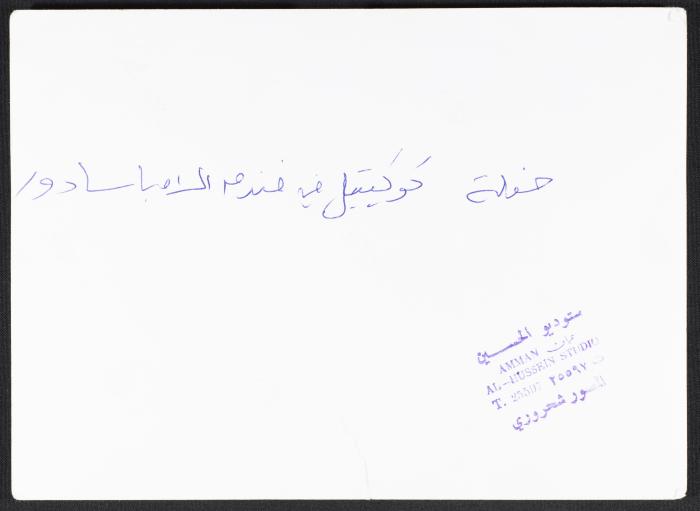 حفلة كوكيتيل في فندق الامباسادور
ستوديو الحسين
AMMAN عمان
AL-HUSSEIN STUDIO
T. 25597 ٢٥٥٩٧ ت
المصور شحروري